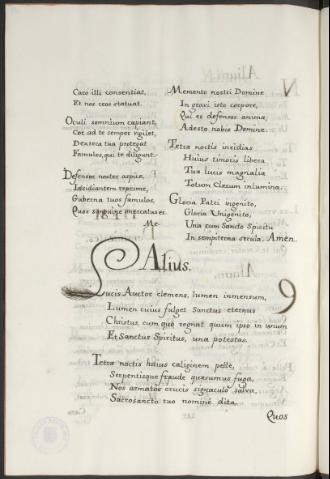 Caro illi consentiat,
Et nos reos statuat.
Oculi somnium capiant,
Cor ad te semper vigilet,
Dextera tua protegat
Famulos, qui te diligunt.
Defensor noster aspice,
Insidiantem reprime,
Guberna tuos famulos,
Quos sanguine mercatus es.
Me-
Memento nostri Domine
In gravi isto corpore,
Qui es defensor animæ,
Adesto nobis Domine.
Tetræ noctis insidias
Huius timoris libera
Tuæ lucis magnalia
Totum Clerum inlumina.
Gloria Patri ingenito,
Gloria Unigenito,
Una cum Sancto Spiritu
In sempiterna sæcula. Amen.
Alius.
Lucis Auctor clemens, lumen inmensum,
Lumen cuius fulget Sanctus eternus
Christus, cum quo regnat quum ipso in unum
Et Sanctus Spiritus, una potestas.
Tetræ noctis huius caliginem pelle,
Serpentisque fraude quæsumus fuga,
Nos armator crucis signaculo salva,
Sacrosancto tuo nomine dita.
Quos